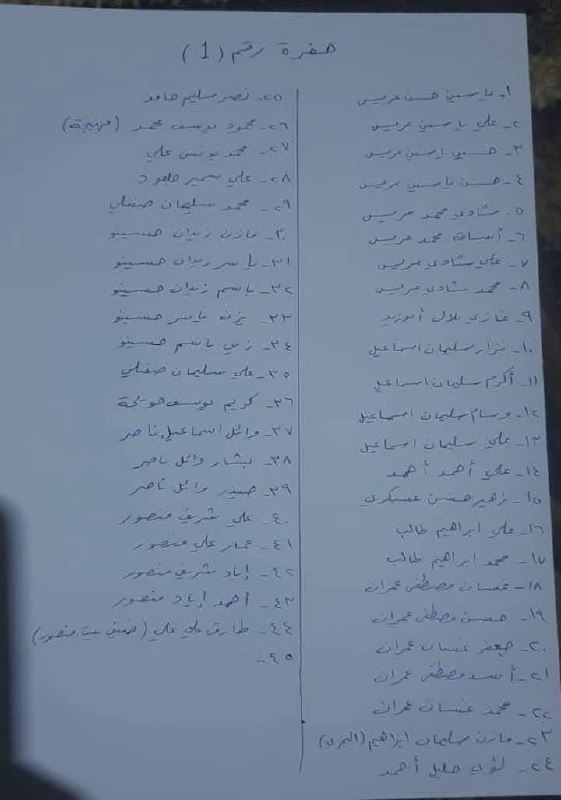 حفرة رقم (1)
١- ياسين حسن عريس
٢- علي ياسين عريس
٣- حسين ياسين عريس
٤- حسن ياسين عريس
٥- شادي محمد عريس
٦- أسامة محمد عريس
٧- علي شادي عريس
٨- محمد شادي عريس
٩- غازي بلال أبوزيد
١٠- نزار سليمان اسماعيل
١١- أكرم سليمان اسماعيل
١٢- وسام سليمان اسماعيل
١٣- علي سليمان اسماعيل
١٤- علي أحمد أحمد
١٥- زهير حسن عسكري
١٦- علي ابراهيم طالب
١٧- محمد ابراهيم طالب
١٨- غسان مصطفى عمران
١٩- حسن مصطفى عمران
٢٠- جعفر غسان عمران
٢١- أسد مصطفى عمران
٢٢- محمد غسان عمران
٢٣- مازن سليمان ابراهيم
٢٤- لؤي خليل أحمد
٢٥- نصر سليم حامد
٢٦- محمود يوسف محمد
٢٧- محمد يونس علي
٢٨- علي سمير
٢٩- محمد سليمان صقلي
٣٠- مازن زيدان حسينو
٣١- ياسر زيدان حسينو
٣٢- باسم زيدان حسينو
٣٣- يزن ياسر حسينو
٣٤- زين باسم حسينو
٣٥- علي سليمان صقلي
٣٦- كريم يوسف حويجة
٣٧- وائل اسماعيل ناصر
٣٨- بشار وائل ناصر
٣٩- حيدر وائل ناصر
٤٠- علي شريف منصور
٤١- عمار علي منصور
٤٢- إياد شريف منصور
٤٣- أحمد إياد منصور
٤٤- طارق علي علي (ضيف بيت منصور)
٤٥-